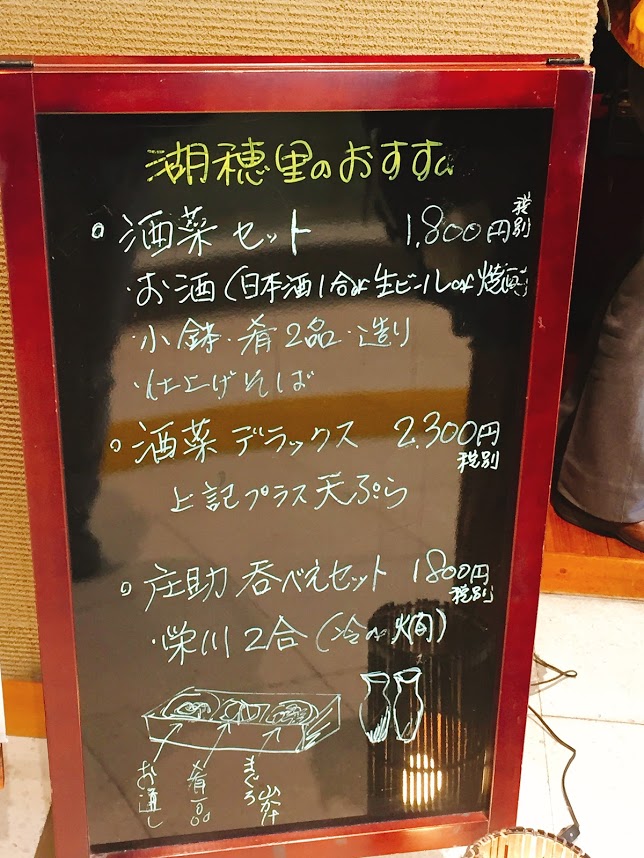 湖穂里のおすすめ
酒菜セット 1,800円 税別
・お酒(日本酒1合or生ビールor焼酎)
・小鉢・肴2品・造り
・仕上げそば
酒菜デラックス 2,300円 税別
上記プラス天ぷら
庄助呑べえセット 1800円 税別
・栄川2合(冷or燗)
お通し
肴一品
まぐろ山かけ